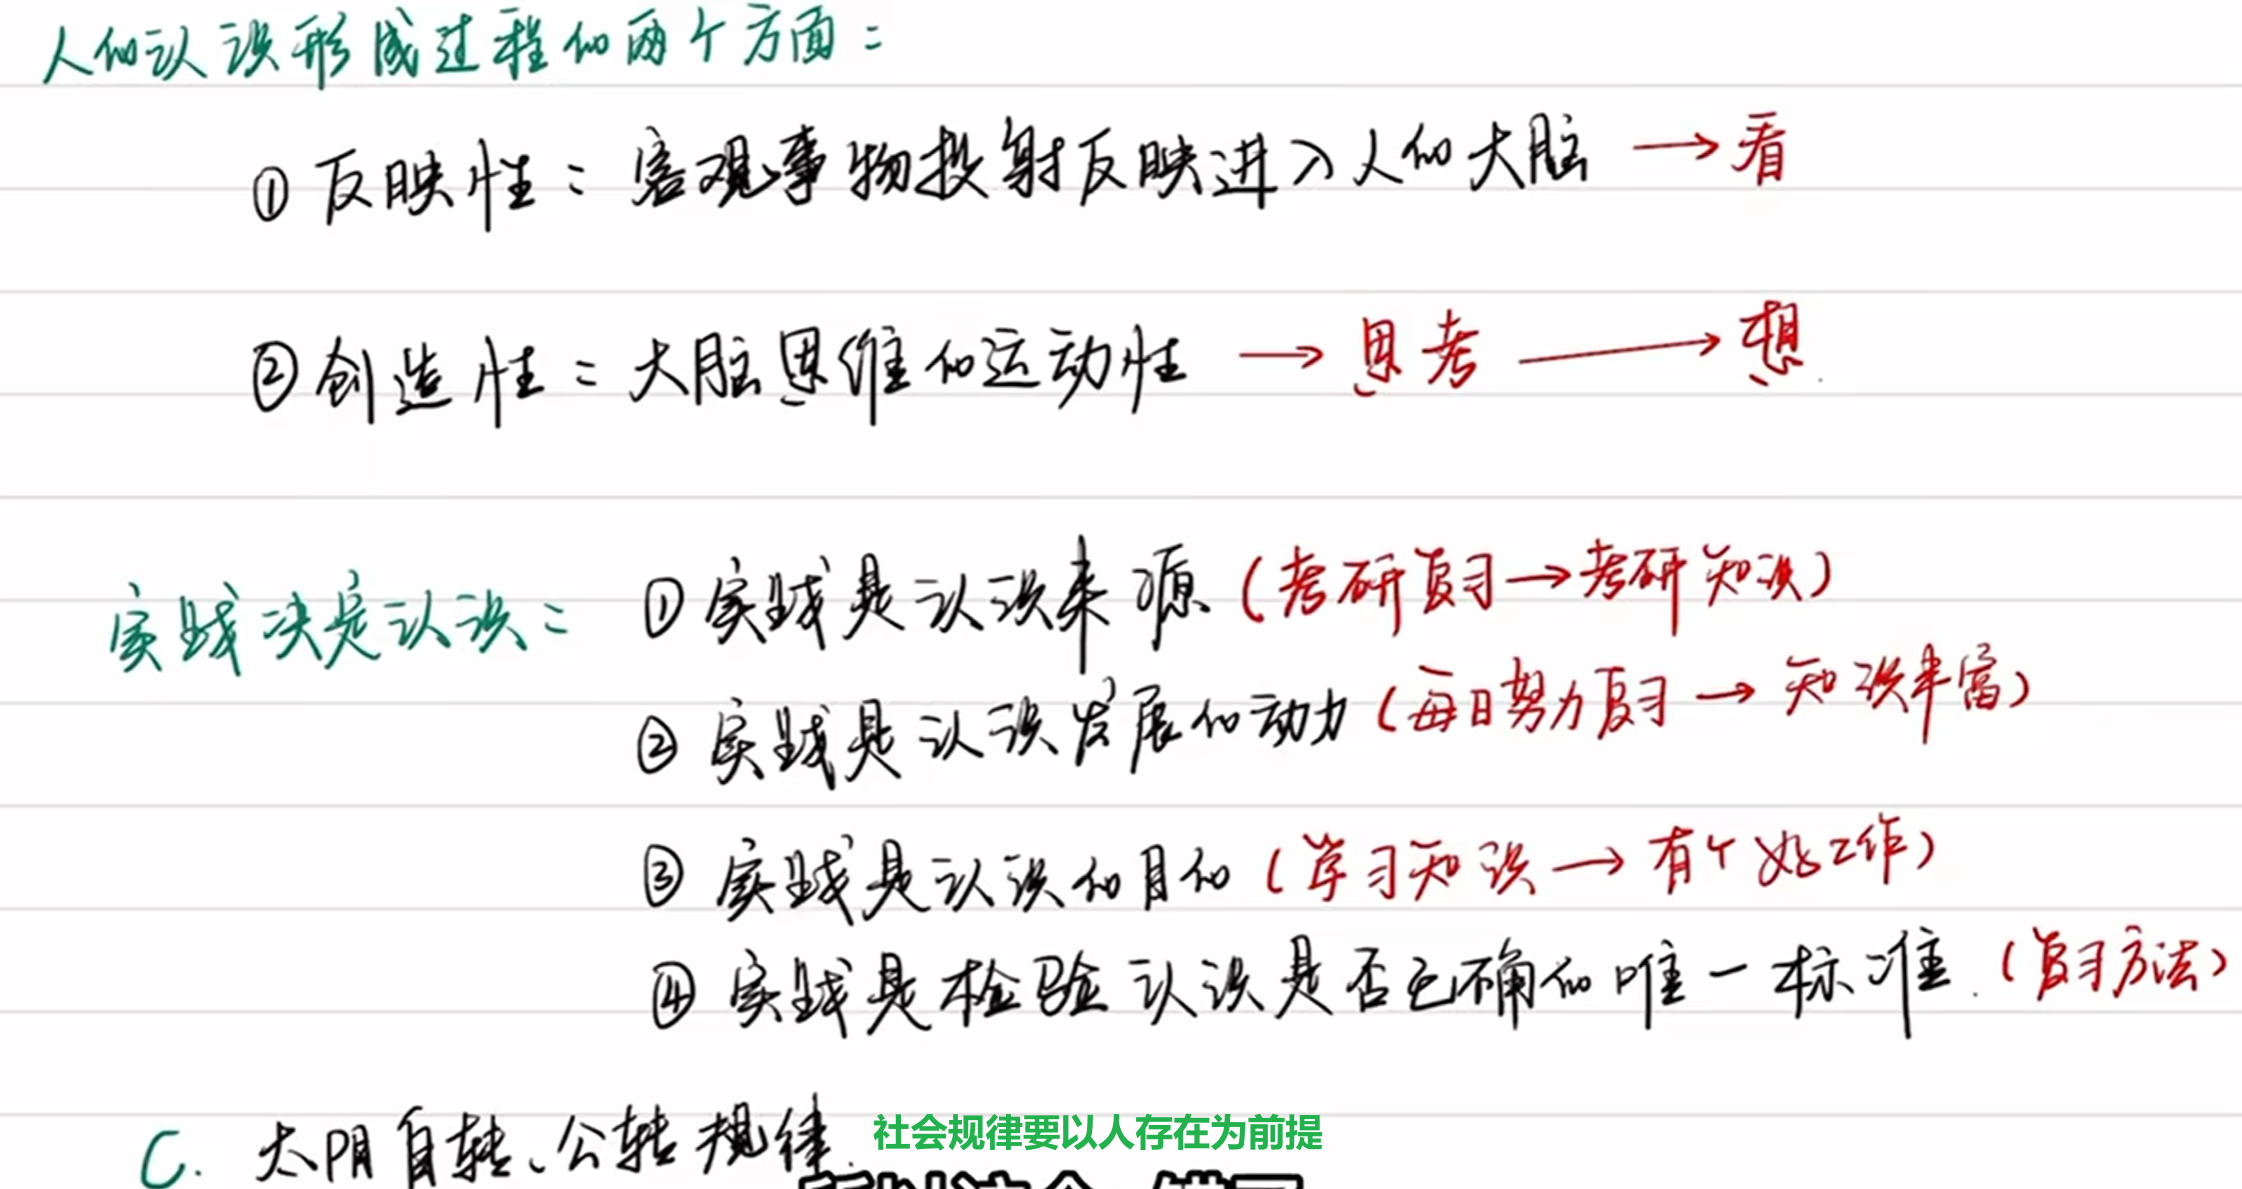 人的认识形成过程的两个方面：
① 反映性：客观事物投射反映进入人的大脑 → 看
② 创造性：大脑思维的运动性 → 思考 → 想
实践决定认识：① 实践是认识来源（考研复习→考研知识）
② 实践是认识发展的动力（每日努力复习→知识丰富）
③ 实践是认识的目的（学习知识→有个好工作）
④ 实践是检验认识是否正确的唯一标准.（复习方法）
C. 太阳自转、公转规律. 社会规律要以人存在为前提